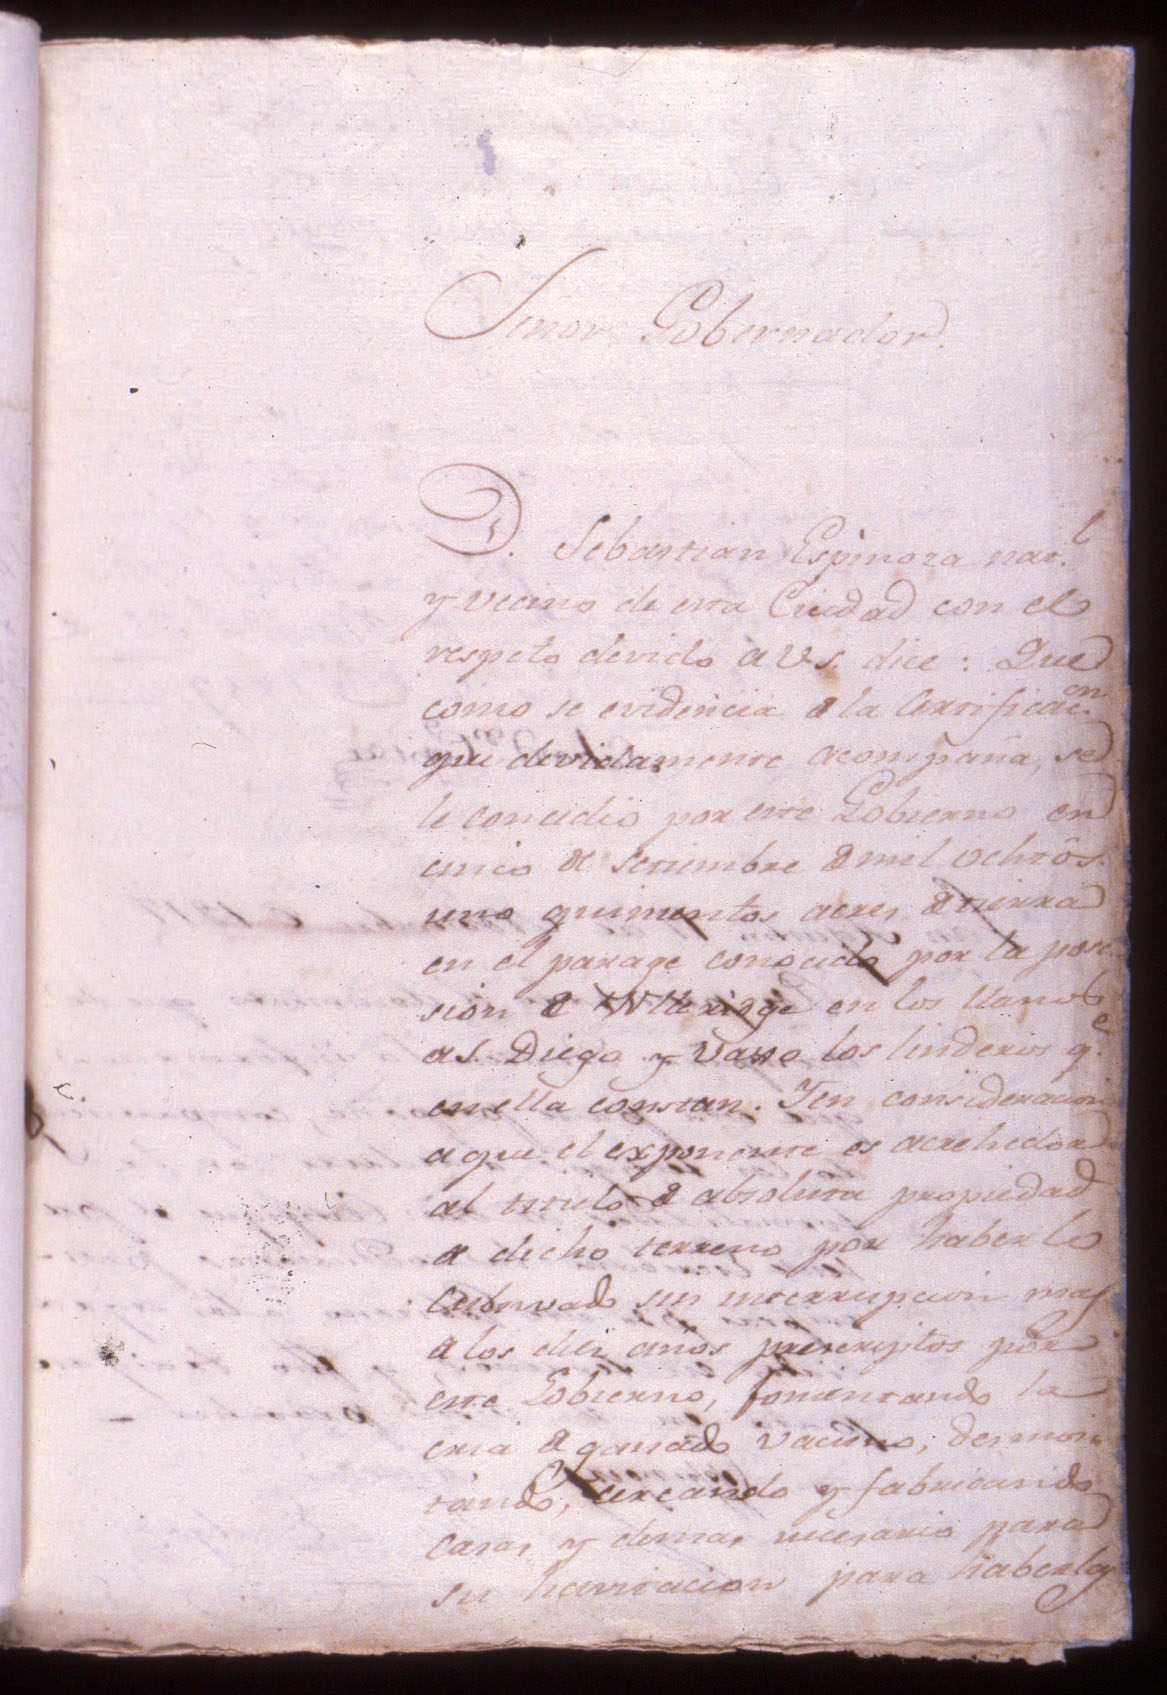 Señor Gobernador.
Dn. Sebastian Espinoza nat.l
y vecino de esta Ciudad con el
respeto devido á VS. dice: Que
como se evidencia de la Certificac.on
que devidamente acompaña, se
le concedio por este Gobierno en
cinco de Setiembre de mil ochõs.
uno quinientos acres de tierra
en el parage conocido por la pose
sion de en los llanos
de S. Diego y vaxo los linderos q.e
en ella constan. Y en consideracion
a que el exponente es acrehedor
al titulo de absoluta propiedad
de dicho terreno por haberlo
Cultivado sin interrupcion mas
de los diez años prescriptos por
este Gobierno, fomentando la
cria de ganado vacuno, desmon
tando, cercando y fabricando
casas y demas necesario para
su havitacion para haberlo